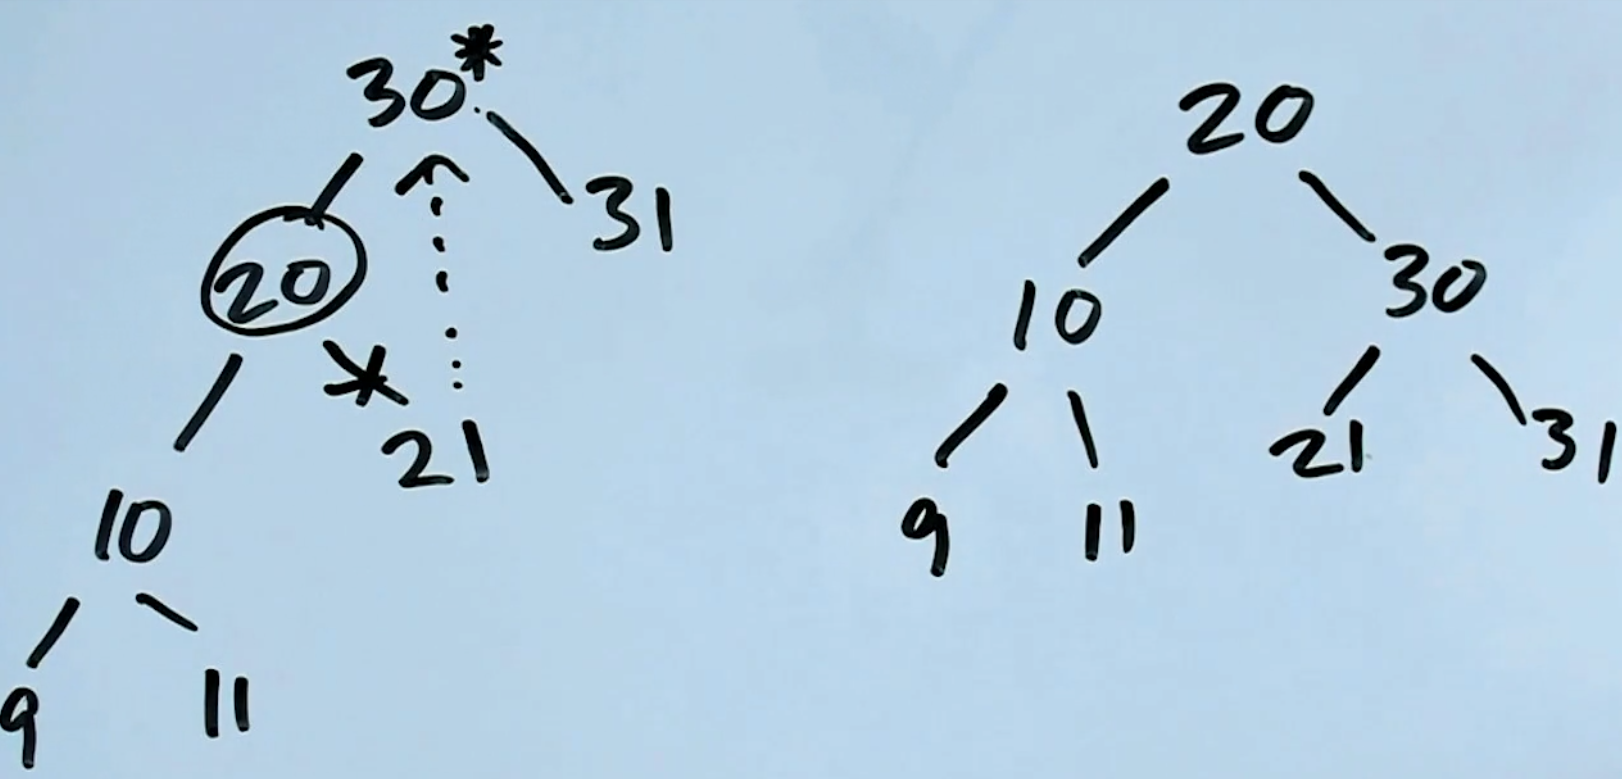 30*
20
31
21
10
9
11
20
10
30
9
11
21
31